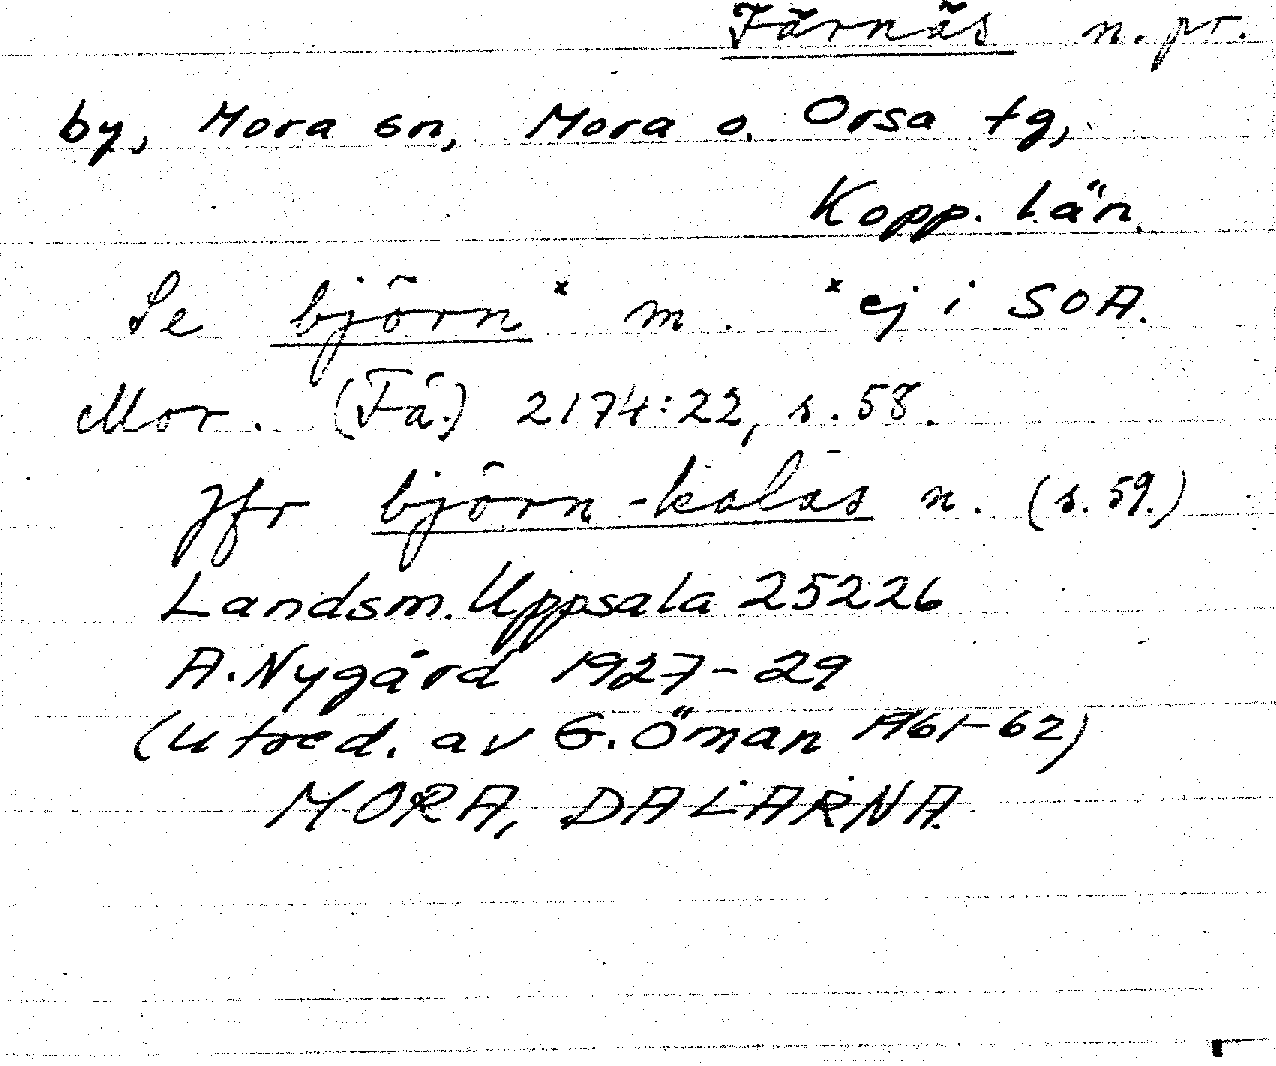 Färnäs n. pr.
by, Mora sn, Mora o. Orsa tg,
Kopp. län.
Se björn x m. x ej i SOA.
Mor. (Fä.) 2174:22, s. 58.
Jfr björn-kalas n. (s. 59.)
Landsm. Uppsala 25226
A. Nygård 1927-29
(Utred. av G. Öman 1961-62)
MORA, DALARNA.